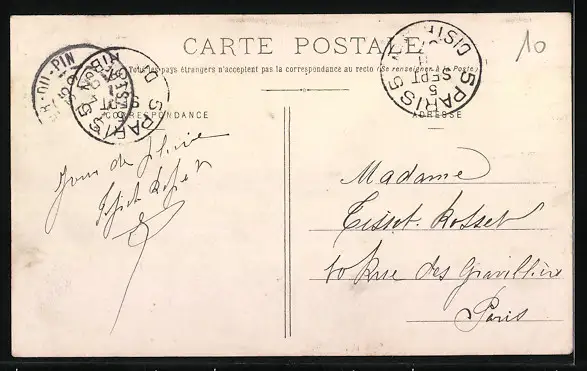 CARTE POSTALE
Tous les pays étrangers n'acceptent pas la correspondance au recto (Se renseigner à la Poste)
CORRESPONDANCE
ADRESSE
10
R-DU-PIN
PARIS 5
5 SEPT
PARIS 5
5 SEPT
DISTR
Jour de pluie
Madame
Tissot-Rosset
10 Rue des Gravilliers
Paris